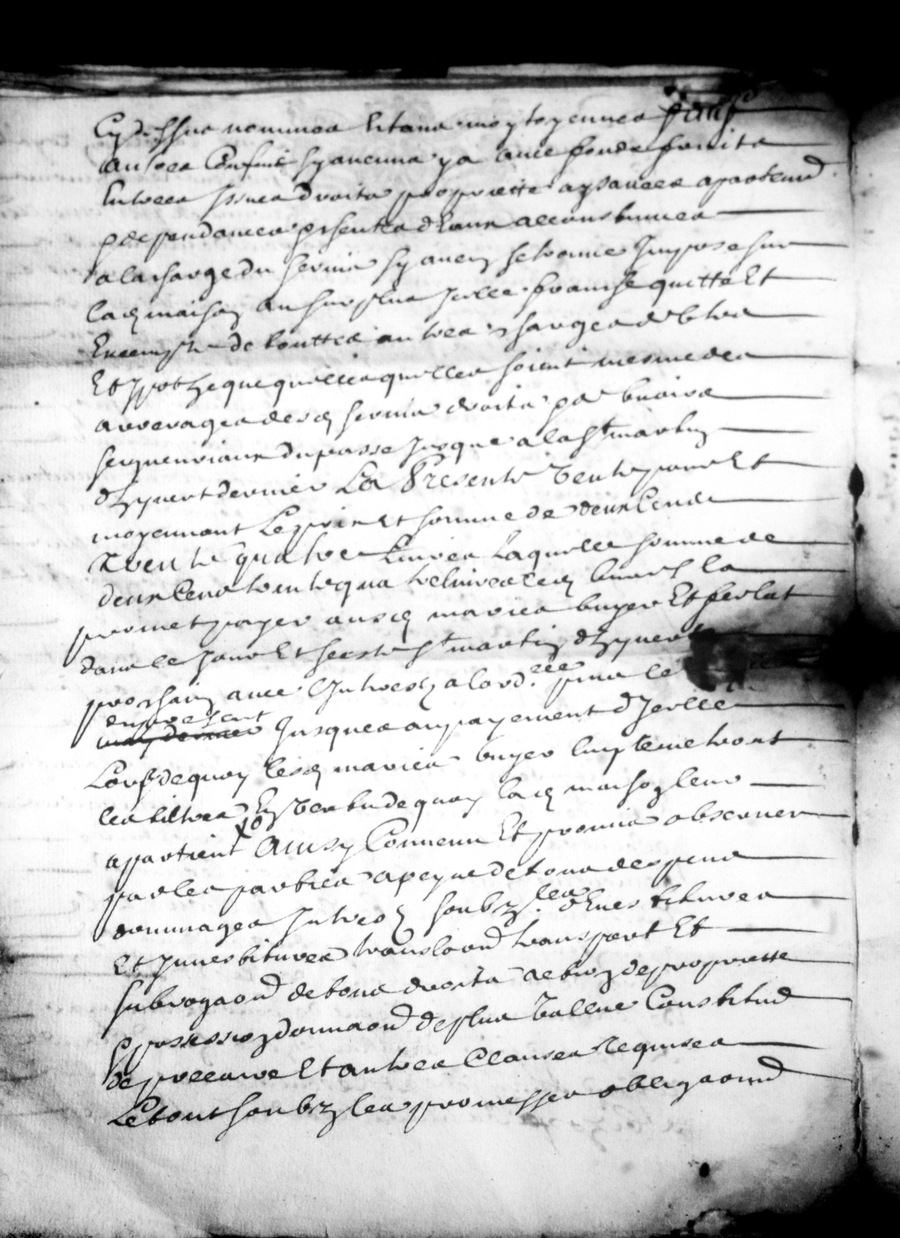 Cy dessus nommes Estans moytoyennes sauf
autres Confins sy aucuns y a avec fonds fruits
Entrees Issues droits proprietté aysances apartend
& dependances presentes d'Eaux accoustumes
a la charge du servis sy aucun se trouve Impose sur
lad maison au surplus Icelle franche quitte Et
Exempte de touttes autres charges debtes
Et ypotheque quelles quelles soient mesme des
arrerages desd servis droits & debvoirs
seigneuriaux du passe Jusque a la st martin
d'hyvert dernier La Presente Vente pour Et
moyennant Le prix Et somme de deux Cens
Trente quatre Livres Laquelle somme de
deux Cens trente quatre livres led
promet payer ausd maries buyer Et
dans le Jour Et feste st martin d'hyvert
prochain avec Interest a l'ord.ce pour le
du present
Jusques au payement d'Icelle
Lors de quoy lesd maries buyer
les tiltres En Vertu de quoy lad maison leur
apartient Ainsy Convenu Et promis observer
par les parties a peyne de tous despens
dommages Interestz soubz les
Et Investitures translaond transport Et
subrogaond de tous droits actions de proprietté
& possession donnaond de plus Vallue Constitud
de precaire Et autres Clauses Requises
Le tout soubz les promesses obligaond